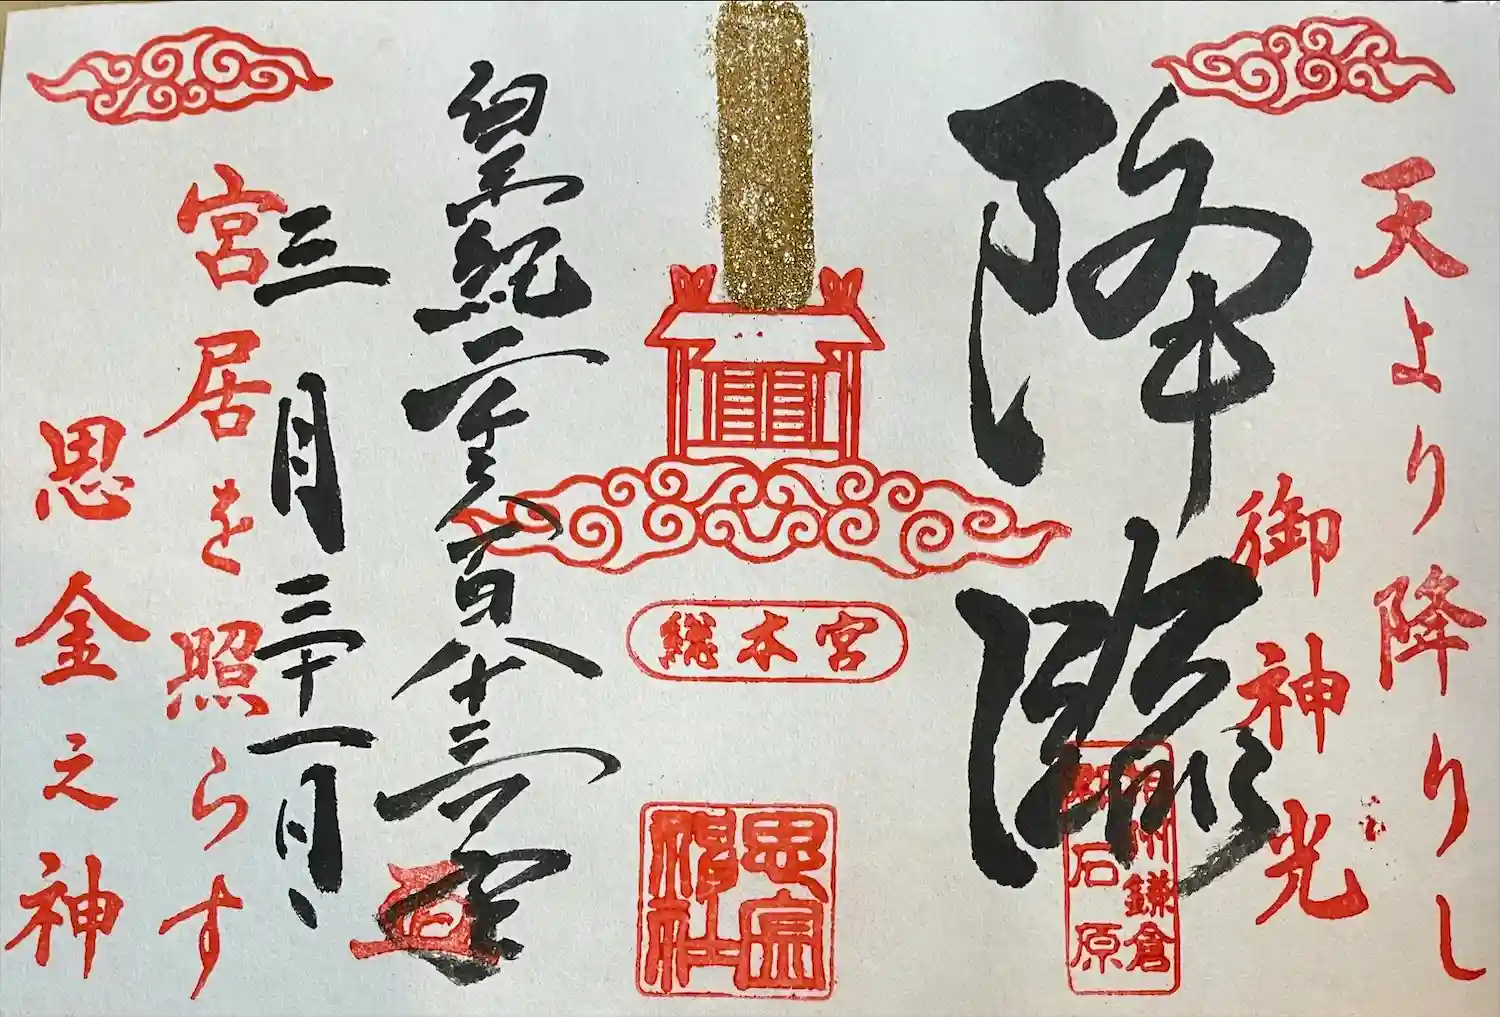 天より降りし
御神光
降臨
相州鎌倉
総本宮
思金
神社
皇紀二千六百八十三年
三月三十一日
宮居を照らす
思金之神